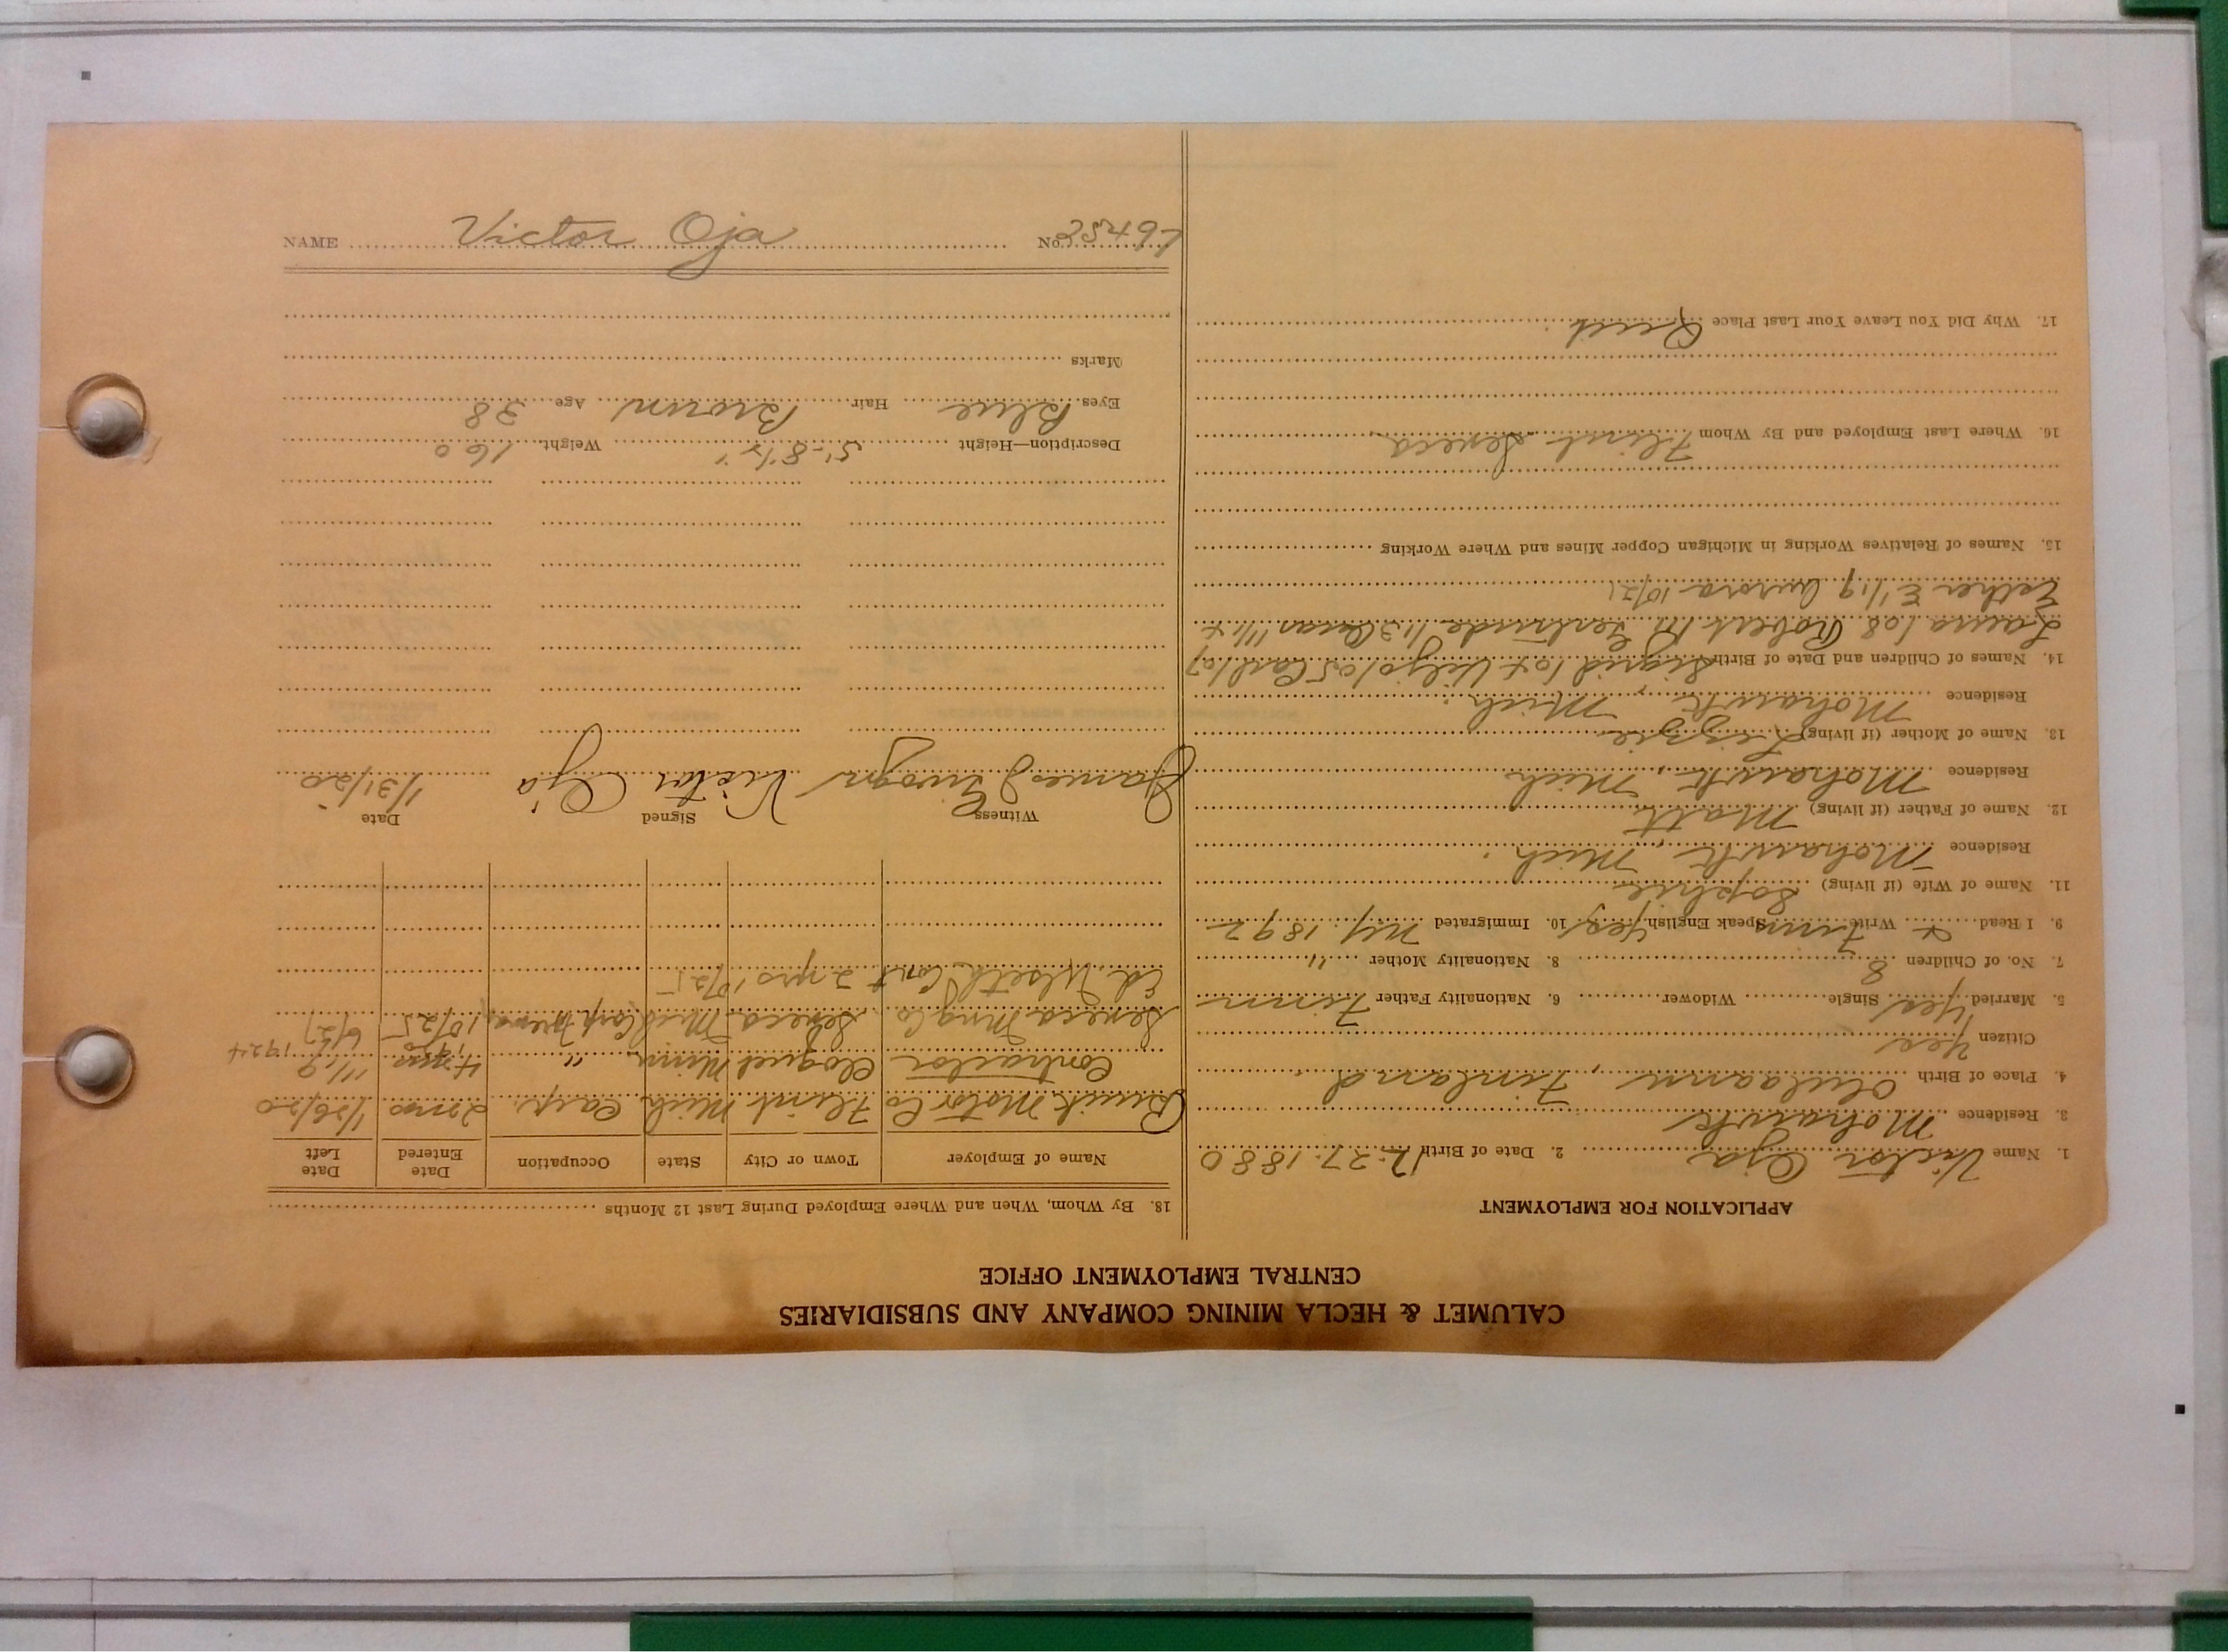 CALUMET & HECLA MINING COMPANY AND SUBSIDIARIES
CENTRAL EMPLOYMENT OFFICE
APPLICATION FOR EMPLOYMENT
1. Name Victor Oja 2. Date of Birth 12-27-1880
3. Residence Mohawk
4. Place of Birth Finland
Citizen Yes
5. Married Yes Single Widower 6. Nationality Father Finn
7. No. of Children 8 8. Nationality Mother "
9. I Read & Write Finn Speak English Yes 10. Immigrated N.Y. 1892
11. Name of Wife (if living) Sophie
Residence Mohawk, Mich.
12. Name of Father (if living) Matt
Residence Mohawk, Mich
13. Name of Mother (if living) Lizzie
Residence Mohawk, Mich.
14. Names of Children and Date of Birth Sigrid 1/04 Viljo 1/05 Carl 1/07
Laura 1/08 Robert 1/11 Gertrude 1/13 11/14
Esther E 1/19 Aurora 10/21
15. Names of Relatives Working in Michigan Copper Mines and Where Working
16. Where Last Employed and By Whom Flint Seneca
17. Why Did You Leave Your Last Place Quit
18. By Whom, When and Where Employed During Last 12 Months
Name of Employer Town or City State Occupation Date Entered Date Left
Buick Motor Co Flint Mich Carp. 2 mo 1/26/20
Contractor Cloquet Minn " 11/19 1924
Seneca Mng Co. Seneca Mich Carp 10/25 6/27
Ed. Ulseth Cont 2 yrs 10/25
Witness Signed Date
James Victor Oja 1/31/20
Description—Height 5'-8½" Weight 160
Eyes Blue Hair Brown Age 38
Marks
NAME Victor Oja No. 25497